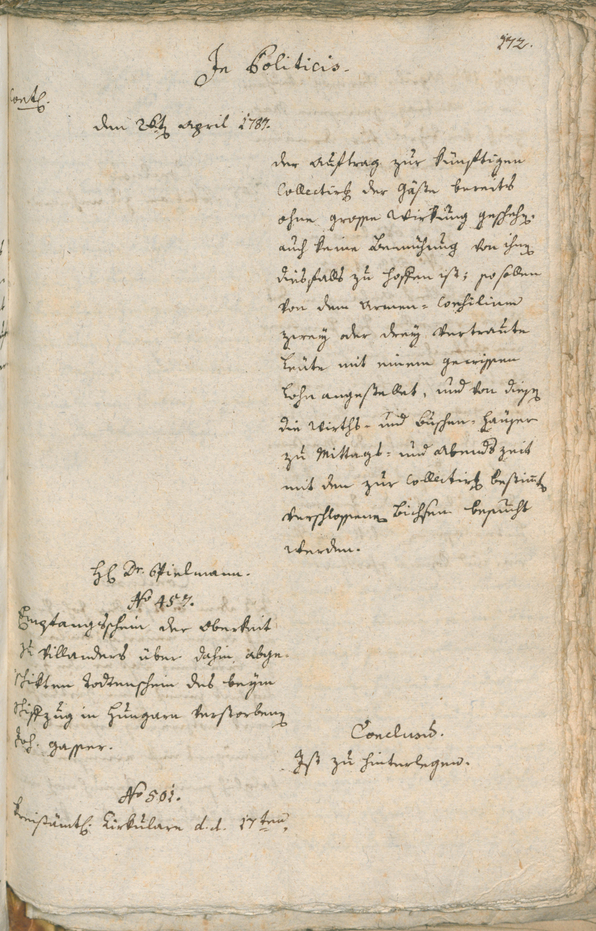 272.
In Politicis.
Contl.
den 26ten April 1787.
der Auftrag zur künftigen
Collectirung der Gäste bereits
ohne grosse Wirkung geschehen,
auch keine Bemühung von ihnen
diesfalls zu hoffen ist; so sollen
von dem Armen-Consilium
zwey oder drey vertraute
Leute mit einem gewissen
Lohn angestellet, und von diesen
die Wirths- und Buschen-Häuser
zu Mittags- und Abendszeit
mit den zur Collectirung bestimten
verschlossenen Bichsen besucht
werden.
H. Dr. Spielmann.
No 457.
Empfangsschein der Oberkeit
zu Villanders über dahin abge-
schikten Todtenschein des beym
Schiffzug in Hungarn verstorbenen
Joh. Gasser.
Conclusum.
Ist zu hinterlegen.
No 501.
Kreisämtl. Cirkulare d. d. 17ten